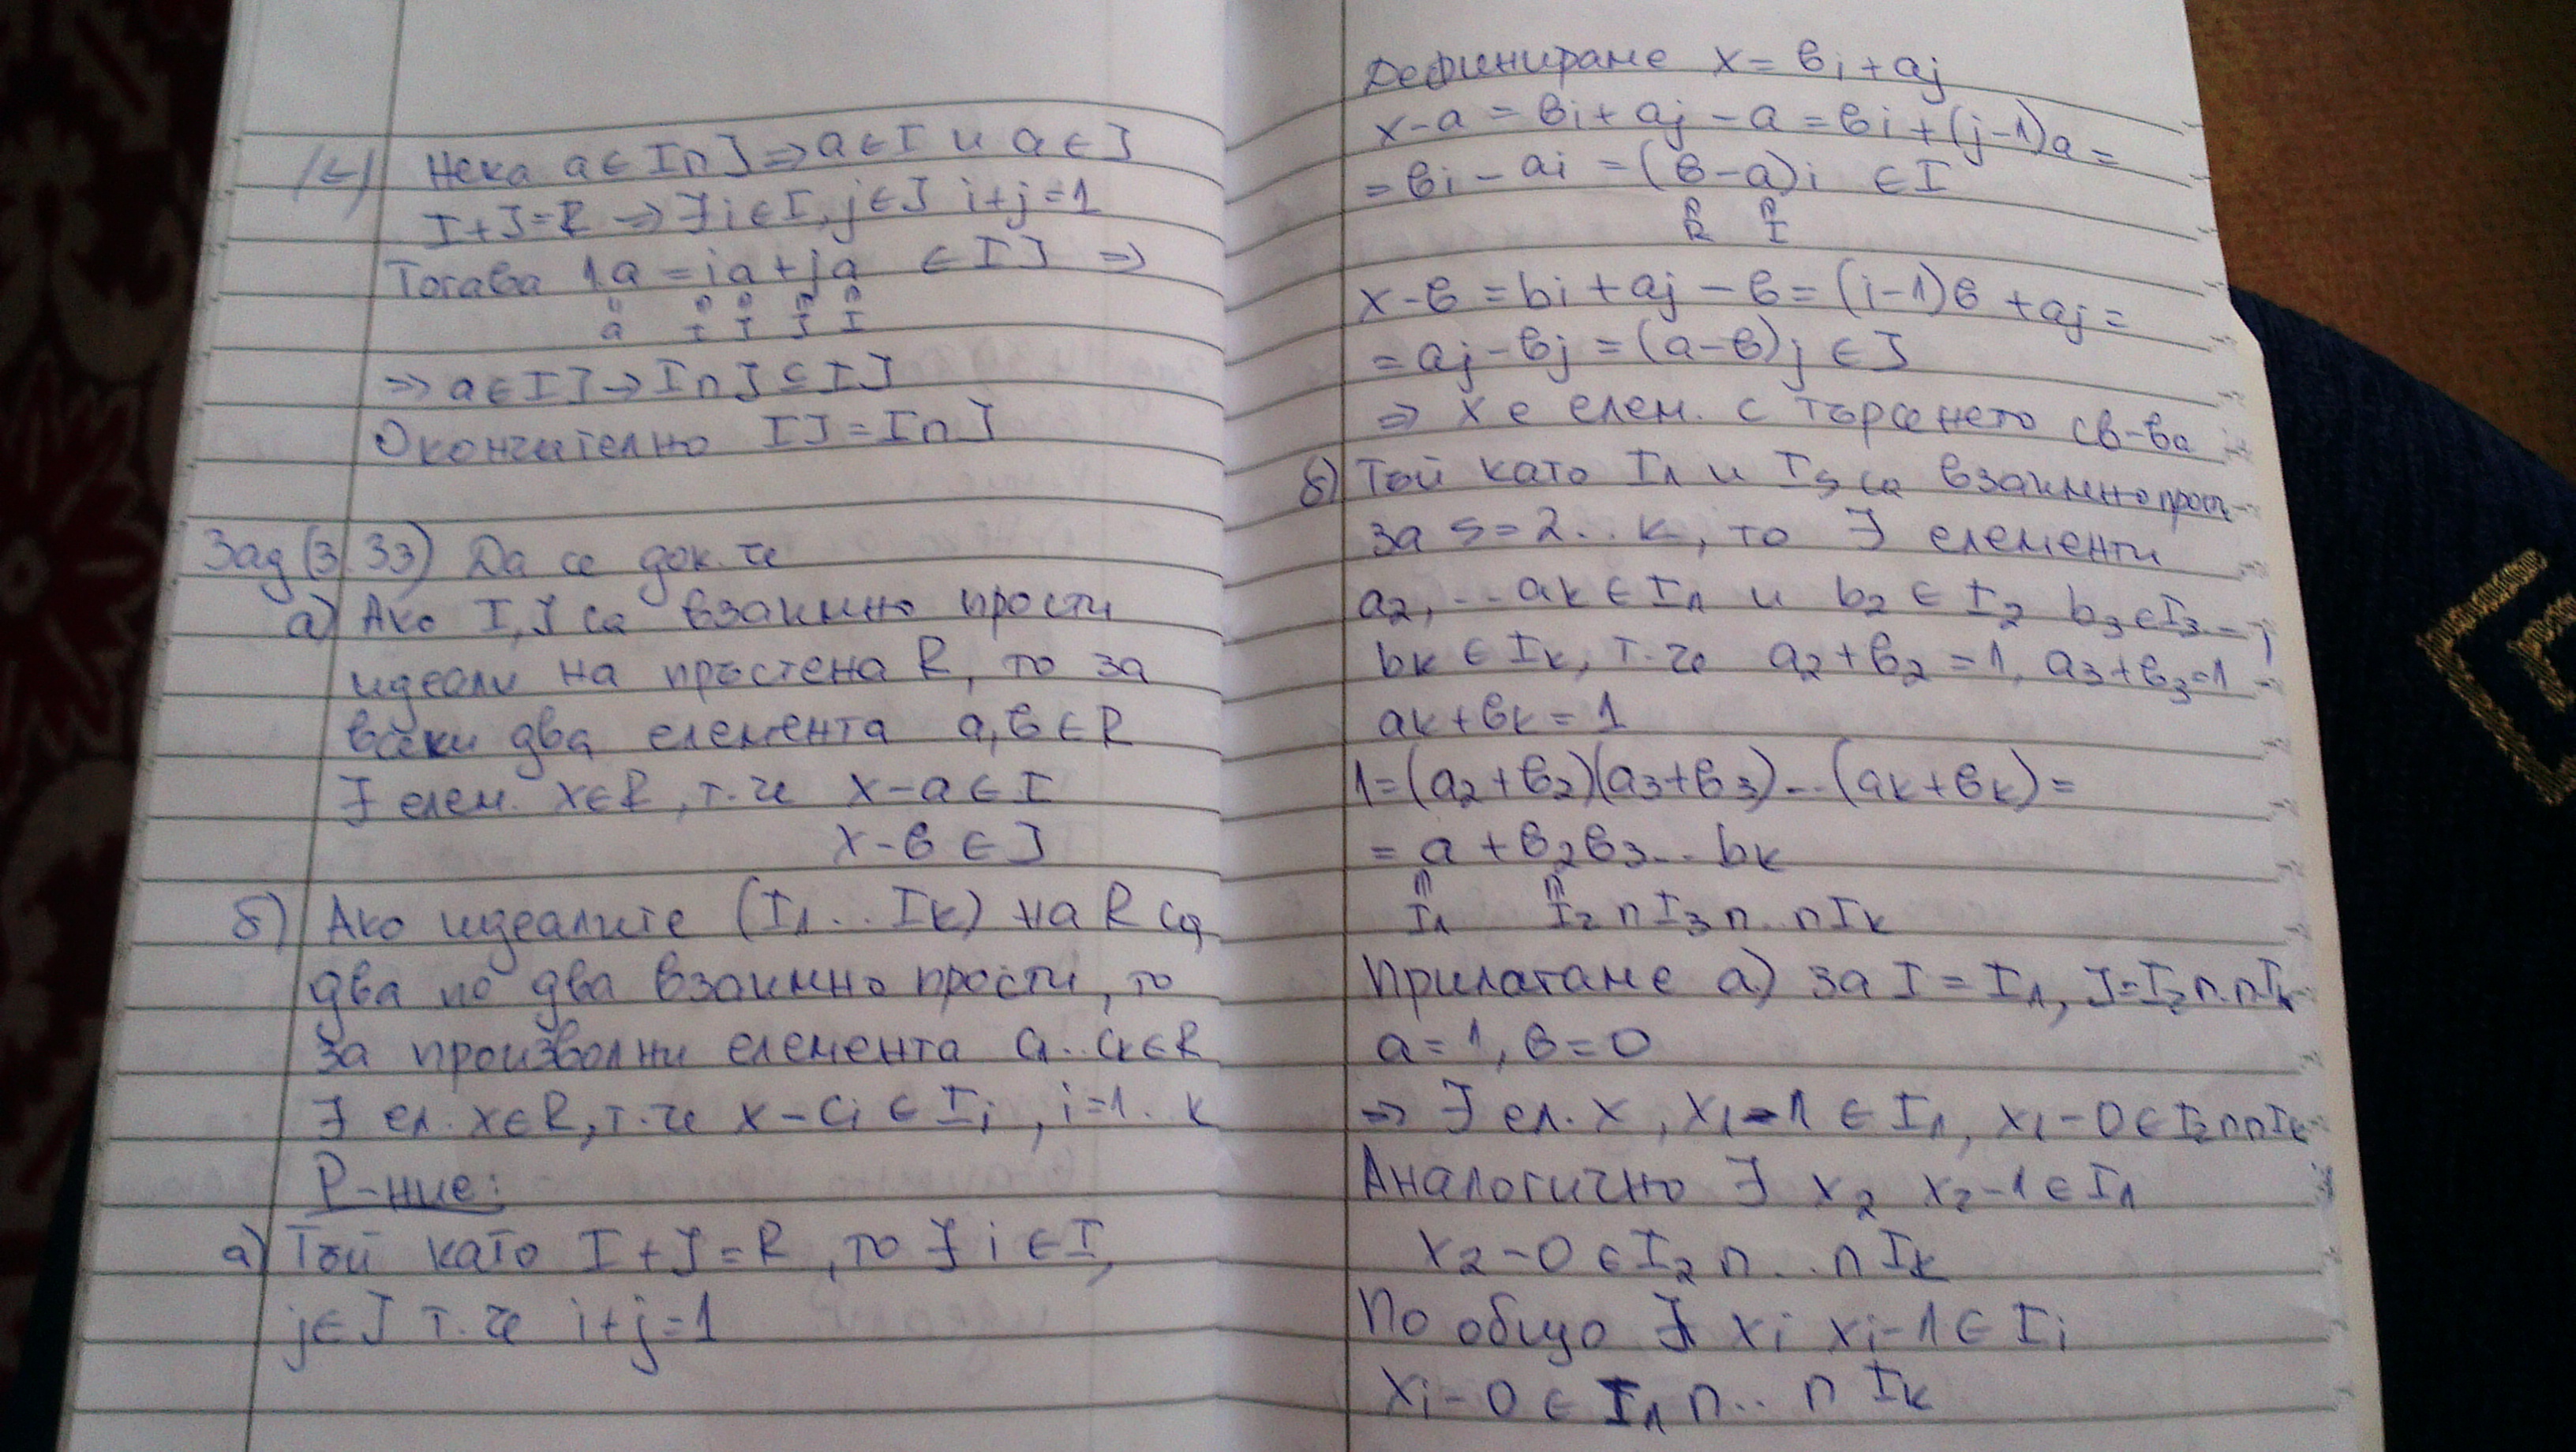 (⊆) Нека a ∈ I∩J ⇒ a ∈ I и a ∈ J
I+J=R ⇒ ∃ i ∈ I, j ∈ J i+j=1
Тогава 1.a = ia + ja ∈ IJ ⇒
a I J J I
⇒ a ∈ IJ → I∩J ⊆ IJ
Окончателно IJ = I∩J
Зад (3.33) Да се док. че
а) Ако I, J са взаимно прости
идеали на пръстена R, то за
всеки два елемента a, b ∈ R
∃ елем. x∈R, т.че x-a ∈ I
x-b ∈ J
б) Ако идеалите (I1 .. Ik) на R са
два по два взаимно прости, то
за произволни елемента c1..ck∈R
∃ ел. x∈R, т.че x-ci ∈ Ii, i=1..k
Р-ние:
а) Тъй като I+J=R, то ∃ i ∈ I,
j∈J т.че i+j=1
Дефинираме x = bi + aj
x-a = bi + aj - a = bi + (j-1)a =
= bi - ai = (b-a)i ∈ I
R I
x-b = bi + aj - b = (i-1)b + aj =
= aj - bj = (a-b)j ∈ J
⇒ x е елем. с търсенето св-ва
б) Тъй като I1 и Is са взаимно прости
за s=2..k, то ∃ елементи
a2, ... ak ∈ I1 и b2 ∈ I2 b3∈I3 ...,
bk ∈ Ik, т.че a2+b2=1, a3+b3=1
ak+bk=1
1=(a2+b2)(a3+b3)...(ak+bk)=
= a + b2b3...bk
I1 I2∩I3∩..∩Ik
Прилагаме а) за I = I1, J=I2∩..∩Ik
a=1, b=0
⇒ ∃ ел. x, x1-1 ∈ I1, x1-0∈I2∩∩Ik
Аналогично ∃ x2 x2-1 ∈ I1
x2-0 ∈ I2 ∩..∩ Ik
По общо ∃ xi xi-1 ∈ Ii
xi-0 ∈ I1 ∩..∩ Ik